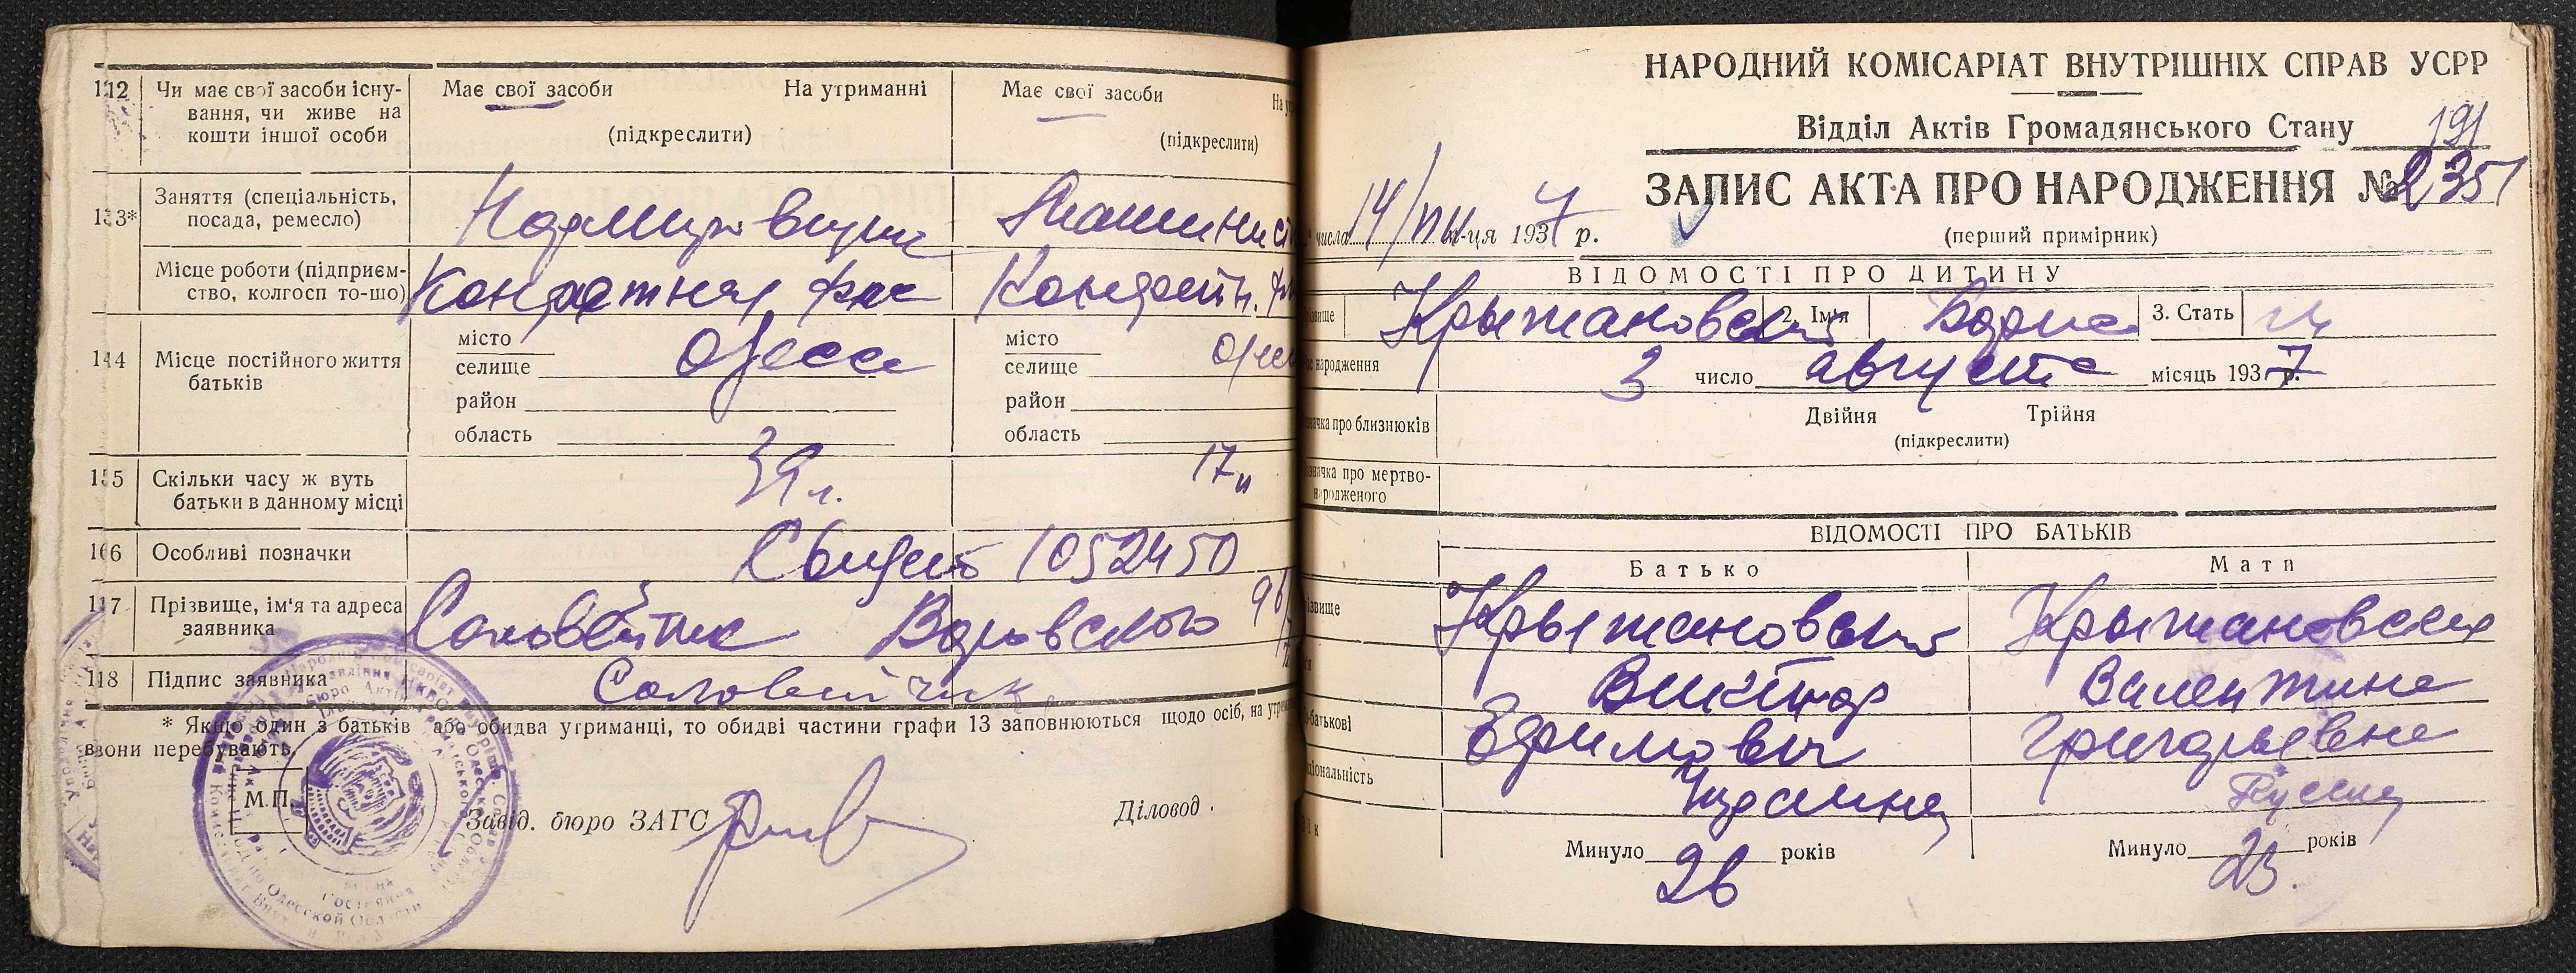 112 Чи має свої засоби існу-
вання, чи живе на
кошти іншої особи
Має свої засоби На утриманні
(підкреслити)
Має свої засоби
(підкреслити)
133* Заняття (спеціальність,
посада, ремесло)
Нормировщик
Місце роботи (підприєм-
ство, колгосп то-що)
144 Місце постійного життя
батьків
місто
селище Одесса
район
область
місто
селище
район
область
155 Скільки часу ж вуть
батьки в данному місці
166 Особливі позначки
1052450
117 Прізвище, ім'я та адреса
заявника
Соловейчик Воровского
118 Підпис заявника
Соловейчик
* Якщо один з батьків або обидва утриманці, то обидві частини графи 13 заповнюються щодо осіб, на
ввони перебувають.
М.П.
Завід. бюро ЗАГС
Діловод.
НАРОДНИЙ КОМІСАРІАТ ВНУТРІШНІХ СПРАВ УСРР
Відділ Актів Громадянського Стану
191
ЗАПИС АКТА ПРО НАРОДЖЕННЯ № 2351
числа 14/ м-ця 1937 р.
(перший примірник)
ВІДОМОСТІ ПРО ДИТИНУ
Крыжановский 2. Ім'я Борис 3. Стать м
народження 3 число августа місяць 1937 р.
про близнюків Двійня Трійня
(підкреслити)
про мертво-
народженого
ВІДОМОСТІ ПРО БАТЬКІВ
Батько Мати
Крыжановский Крыжановская
Виктор Валентина
Ефимович Григорьевна
Минуло 26 років
Минуло 23 років